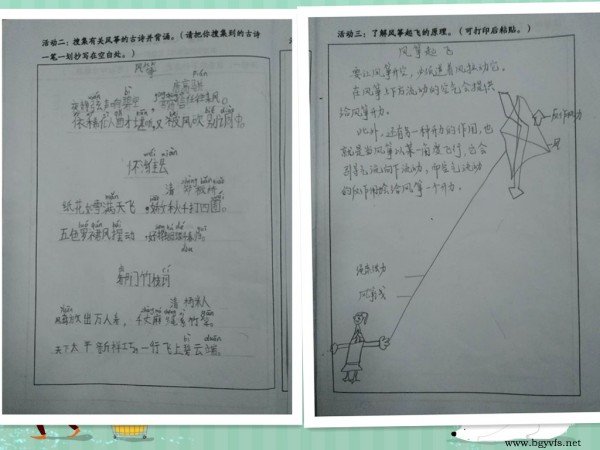 活动二：搜集有关风筝的古诗并背诵。（请把你搜集到的古诗
一笔一划抄写在空白处。）
风筝
唐 高骈
夜静弦声响碧空
宫商信任往来风
依稀似曲才堪听，又被风吹别调中。
怀潍县
清 郑板桥
纸花如雪满天飞，娇女秋千打四围。
五色罗裙风摆动，好将蝴蝶斗春归。
竹枝词
清
放出万人看，千丈麻绳系竹
天下太平新样巧，一行飞上碧云端。
活动三：了解风筝起飞的原理。（可打印后粘贴。）
风筝起飞
要让风筝升空，必须逆着风拉动它。
在风筝上下方流动的空气会提供
给风筝升力。
此外，还有另一种升力的作用，也
就是当风筝以某一角度飞行，它会
引导气流向下流动，而空气流动
的反作用就给风筝一个升力。
反作用力
风
绳索拉力
风筝线
www.bgyvfs.net